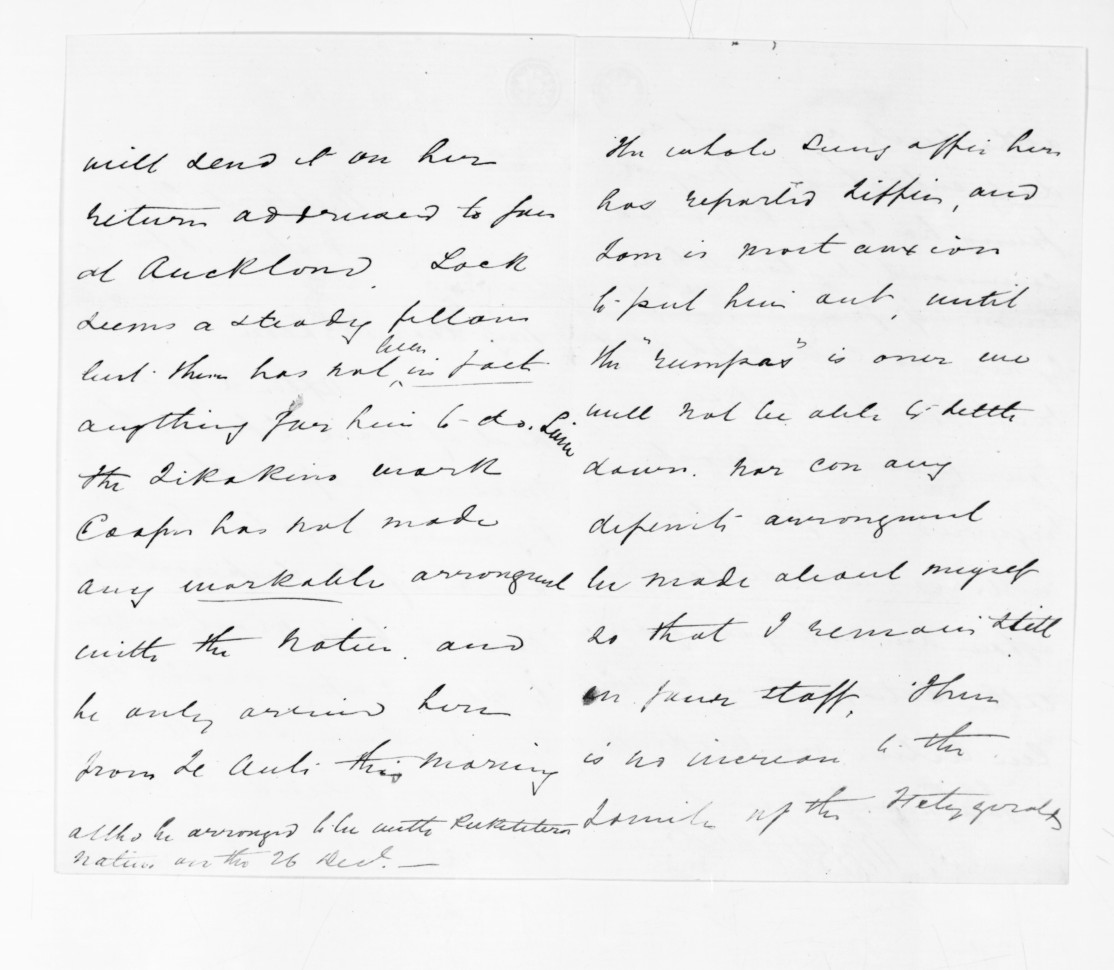 will send it on her
return addressed to you
at Auckland. Lock
seems a steady fellow
but there has not been in fact
anything for him to do. Since
the Tikokino work
Cooper has not made
any workable arrangment
with the Natives. and
he only arrived here
from Te Aute this morning
altho he arranged to be with Puketitiri
Natives on the 26 Decr. —
The whole Survey office here
has reported Tiffin, and
Tom is most anxious
to put him out, until
the "rumpas" is over we
will not be able to settle
down. nor can any
definite arrangment
be made about myself
so that I remain still
on your staff. There
is no increase to the
Family of the Fitzgeralds